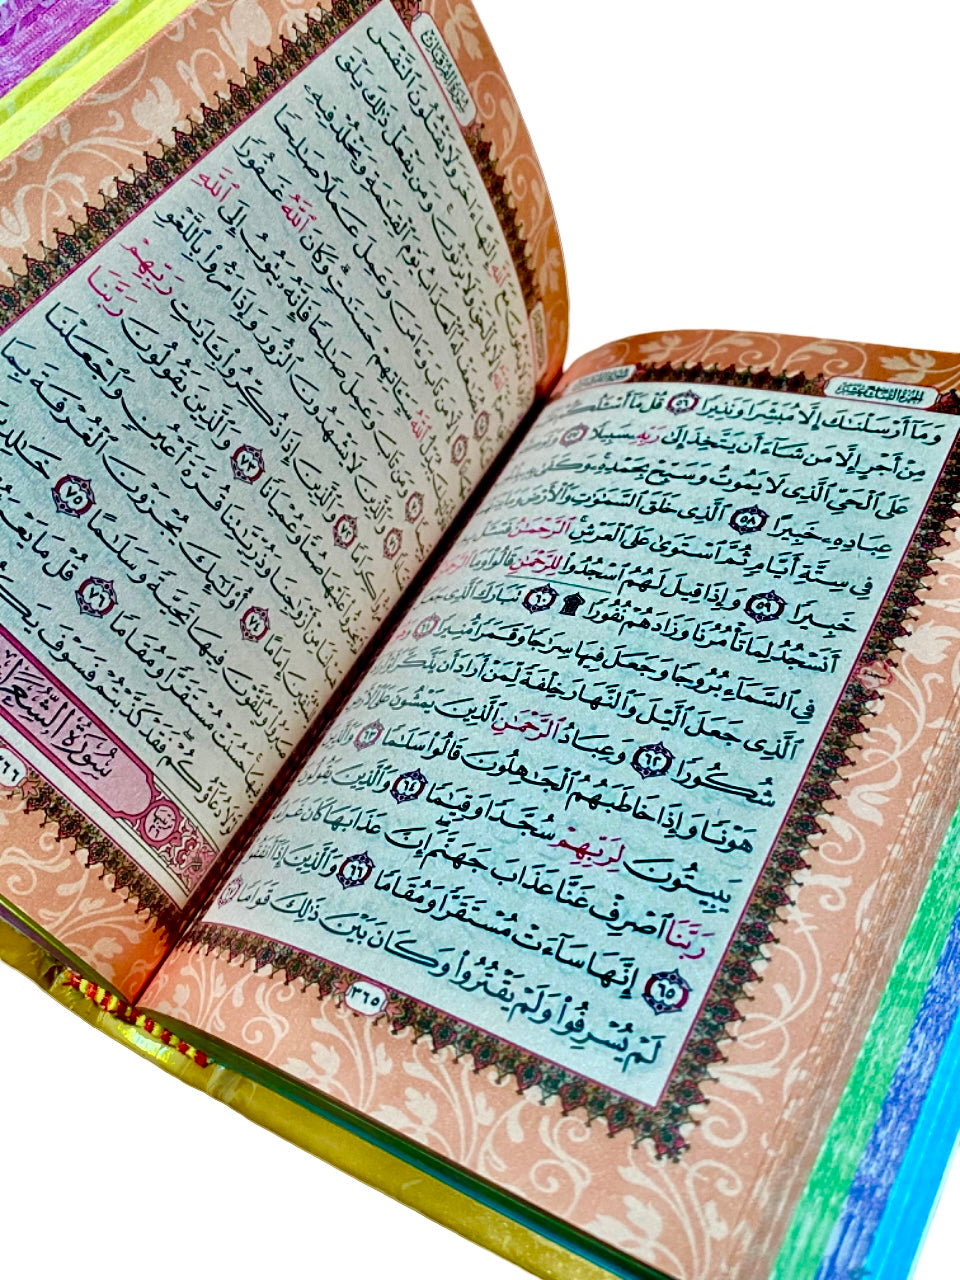 الجزء التاسع عشر
سورة الفرقان
وَمَآ أَرْسَلْنَٰكَ إِلَّا مُبَشِّرًا وَنَذِيرًا ٥٦ قُلْ مَآ أَسْـَٔلُكُمْ
مِنْ أَجْرٍ إِلَّا مَن شَآءَ أَن يَتَّخِذَ إِلَىٰ رَبِّهِۦ سَبِيلًا ٥٧ وَتَوَكَّلْ
عَلَى ٱلْحَىِّ ٱلَّذِى لَا يَمُوتُ وَسَبِّحْ بِحَمْدِهِۦ وَكَفَىٰ بِهِۦ
عِبَادِهِۦ خَبِيرًا ٥٨ ٱلَّذِى خَلَقَ ٱلسَّمَٰوَٰتِ وَٱلْأَرْضَ وَمَا
فِى سِتَّةِ أَيَّامٍ ثُمَّ ٱسْتَوَىٰ عَلَى ٱلْعَرْشِ ٱلرَّحْمَٰنُ فَسْـَٔلْ
خَبِيرًا ٥٩ وَإِذَا قِيلَ لَهُمُ ٱسْجُدُوا۟ لِلرَّحْمَٰنِ قَالُوا۟ وَمَا ٱلرَّحْمَٰنُ
أَنَسْجُدُ لِمَا تَأْمُرُنَا وَزَادَهُمْ نُفُورًا ۩ ٦٠ تَبَارَكَ ٱلَّذِى جَعَلَ
فِى ٱلسَّمَآءِ بُرُوجًا وَجَعَلَ فِيهَا سِرَٰجًا وَقَمَرًا مُّنِيرًا ٦١ وَهُوَ
ٱلَّذِى جَعَلَ ٱلَّيْلَ وَٱلنَّهَارَ خِلْفَةً لِّمَنْ أَرَادَ أَن يَذَّكَّرَ أَوْ أَرَادَ
شُكُورًا ٦٢ وَعِبَادُ ٱلرَّحْمَٰنِ ٱلَّذِينَ يَمْشُونَ عَلَى ٱلْأَرْضِ
هَوْنًا وَإِذَا خَاطَبَهُمُ ٱلْجَٰهِلُونَ قَالُوا۟ سَلَٰمًا ٦٣ وَٱلَّذِينَ
يَبِيتُونَ لِرَبِّهِمْ سُجَّدًا وَقِيَٰمًا ٦٤ وَٱلَّذِينَ يَقُولُونَ
رَبَّنَا ٱصْرِفْ عَنَّا عَذَابَ جَهَنَّمَ إِنَّ عَذَابَهَا كَانَ غَرَامًا
٦٥ إِنَّهَا سَآءَتْ مُسْتَقَرًّا وَمُقَامًا ٦٦ وَٱلَّذِينَ إِذَآ أَنفَقُوا۟
لَمْ يُسْرِفُوا۟ وَلَمْ يَقْتُرُوا۟ وَكَانَ بَيْنَ ذَٰلِكَ قَوَامًا ٦٧
٣٦٥
سورة الفرقان
ءَاخَرَ وَلَا يَقْتُلُونَ ٱلنَّفْسَ
وَلَا يَزْنُونَ وَمَن يَفْعَلْ ذَٰلِكَ يَلْقَ
ٱلْعَذَابُ يَوْمَ ٱلْقِيَٰمَةِ وَيَخْلُدْ فِيهِۦ
مَن تَابَ وَءَامَنَ وَعَمِلَ عَمَلًا صَٰلِحًا
سَيِّـَٔاتِهِمْ حَسَنَٰتٍ وَكَانَ ٱللَّهُ غَفُورًا
وَعَمِلَ صَٰلِحًا فَإِنَّهُۥ يَتُوبُ إِلَى ٱللَّهِ
وَٱلَّذِينَ لَا يَشْهَدُونَ ٱلزُّورَ وَإِذَا مَرُّوا۟ بِٱللَّغْوِ
كِرَامًا ٧٢ وَٱلَّذِينَ إِذَا ذُكِّرُوا۟ بِـَٔايَٰتِ رَبِّهِمْ
عَلَيْهَا صُمًّا وَعُمْيَانًا ٧٣ وَٱلَّذِينَ يَقُولُونَ رَبَّنَا
مِنْ أَزْوَٰجِنَا وَذُرِّيَّٰتِنَا قُرَّةَ أَعْيُنٍ وَٱجْعَلْنَا
إِمَامًا ٧٤ أُو۟لَٰٓئِكَ يُجْزَوْنَ ٱلْغُرْفَةَ بِمَا
وَيُلَقَّوْنَ فِيهَا تَحِيَّةً وَسَلَٰمًا ٧٥ خَٰلِدِينَ
حَسُنَتْ مُسْتَقَرًّا وَمُقَامًا ٧٦ قُلْ مَا يَعْبَؤُا۟
دُعَآؤُكُمْ فَقَدْ كَذَّبْتُمْ فَسَوْفَ يَكُونُ
سُورَةُ الشُّعَرَاءِ
٣٦٦